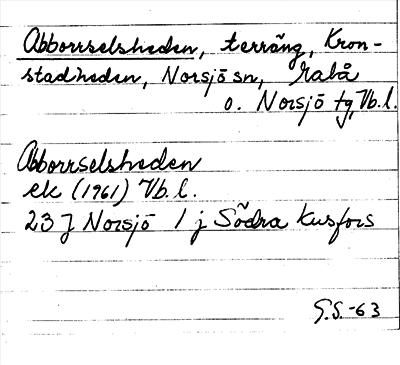 Abborrselsheden, terräng, Kron-
stadheden, Norsjö sn, Malå
o. Norsjö tg, Vb.l.
Abborrselsheden
ek (1961) Vb.l.
23 J Norsjö 1 j Södra Kusfors
G.S.-63